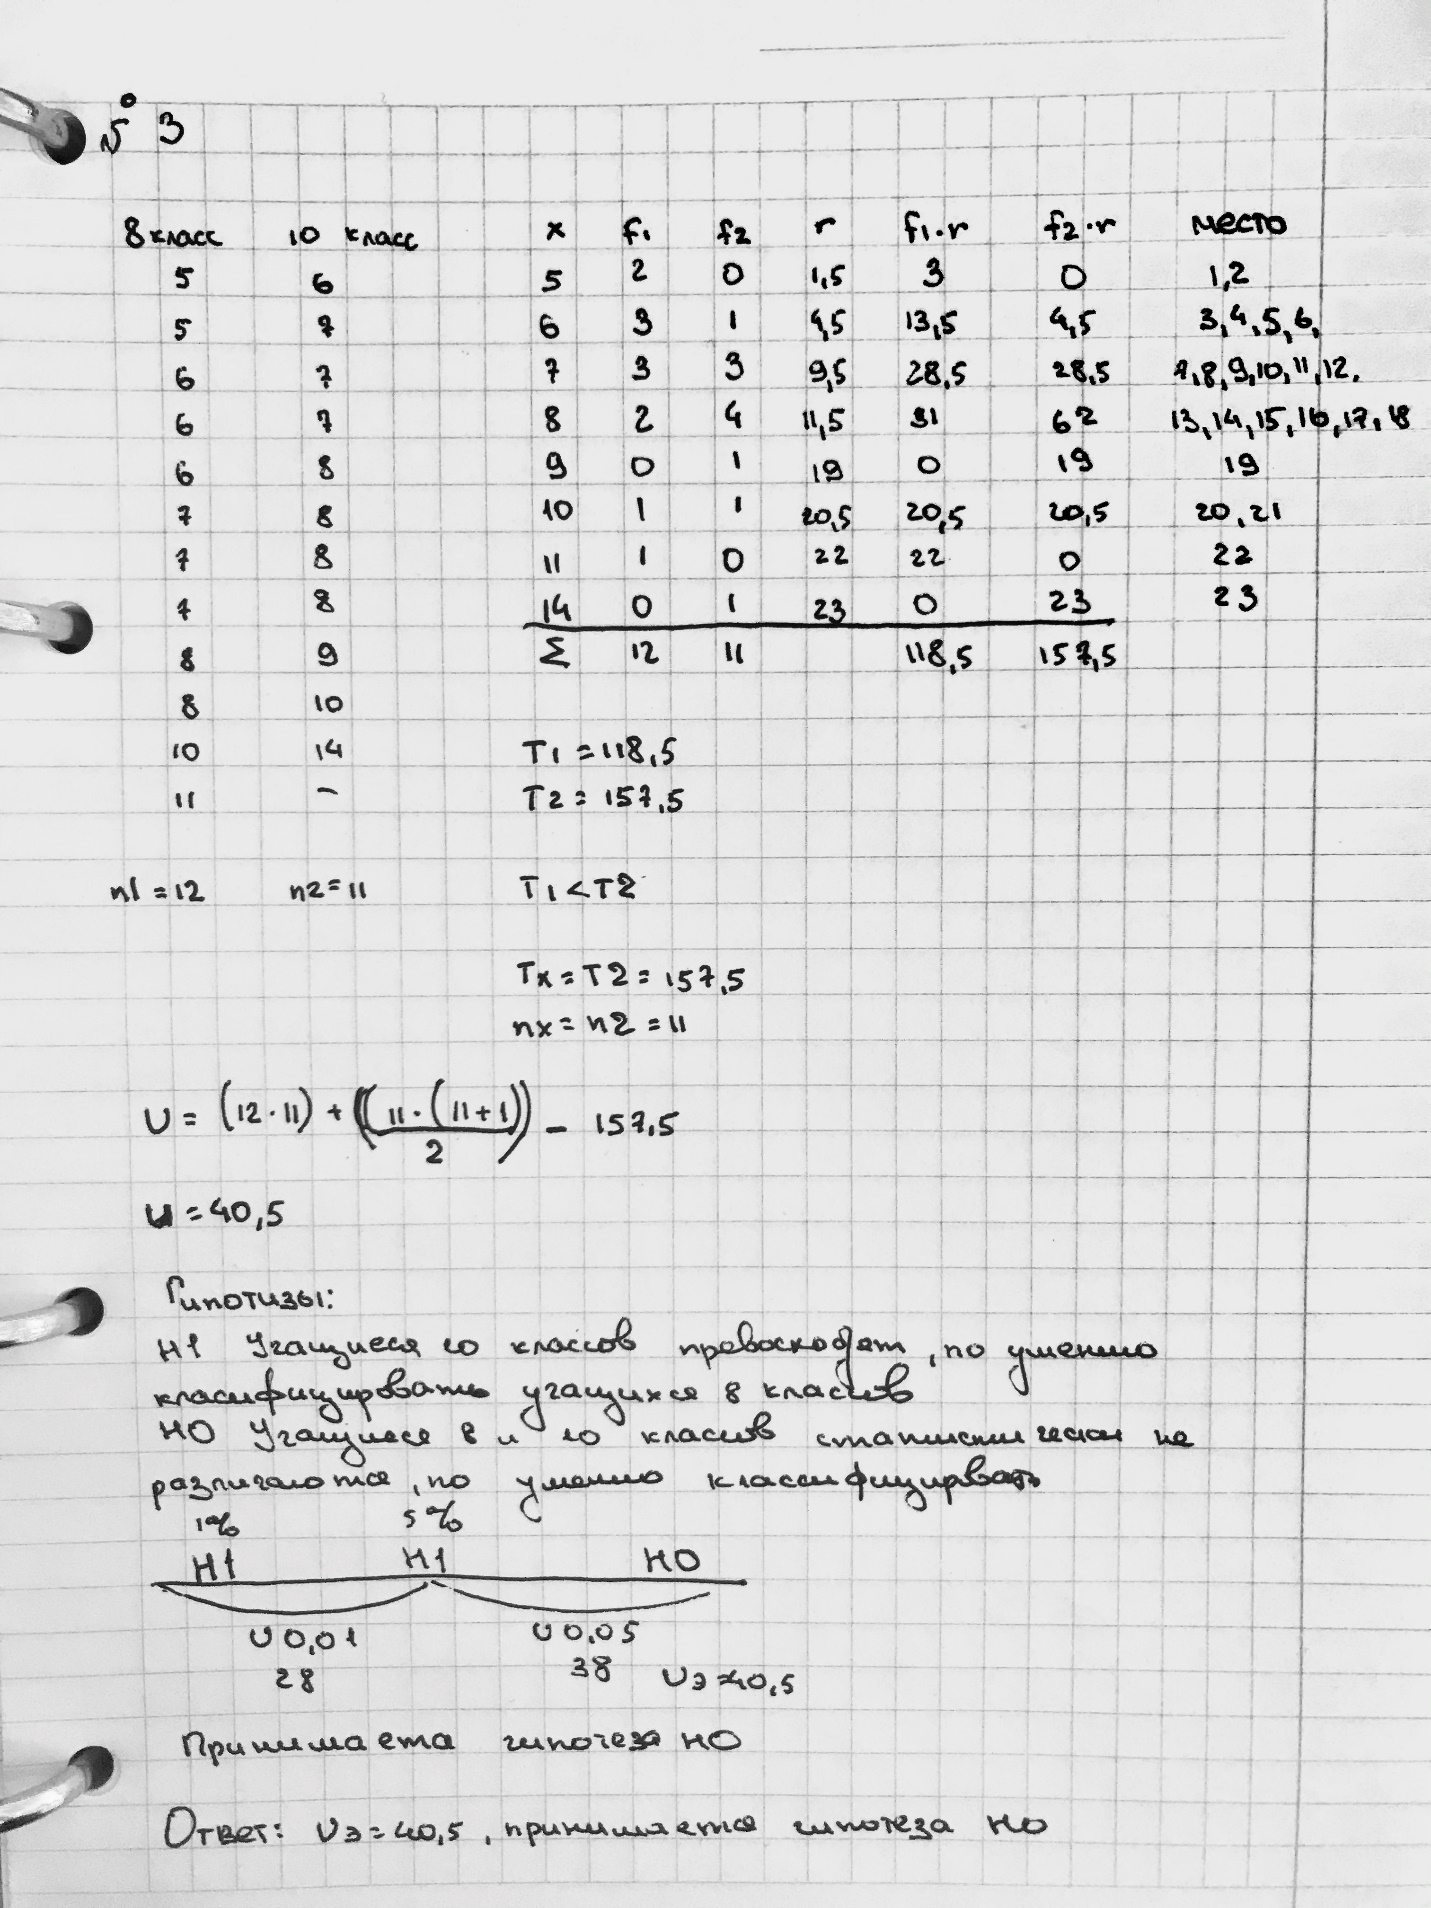 № 3
8 класс 10 класс x f1 f2 r f1·r f2·r место
5 6 5 2 0 1,5 3 0 1,2
5 7 6 3 1 4,5 13,5 4,5 3,4,5,6,
6 7 7 3 3 9,5 28,5 28,5 7,8,9,10,11,12.
6 7 8 2 4 11,5 31 62 13,14,15,16,17,18
6 8 9 0 1 19 0 19 19
7 8 10 1 1 20,5 20,5 20,5 20,21
7 8 11 1 0 22 22 0 22
7 8 14 0 1 23 0 23 23
8 9 Σ 12 11 118,5 157,5
8 10
10 14 T1 = 118,5
11 – T2 = 157,5
n1 = 12 n2 = 11 T1 < T2
Tx = T2 = 157,5
nx = n2 = 11
U = (12·11) + ((11·(11+1))/2) – 157,5
U = 40,5
Гипотизы:
H1 Учащиеся 10 классов превосходят, по умению
класифицировать учащихся 8 классов
H0 Учащиеся 8 и 10 классов статистически не
различаются, по умению классифицировать
1% 5%
H1 H1 H0
U 0,01 U 0,05
28 38 Uэ=40,5
Принимаета гипотеза H0
Ответ: Uэ=40,5, принимается гипотеза H0